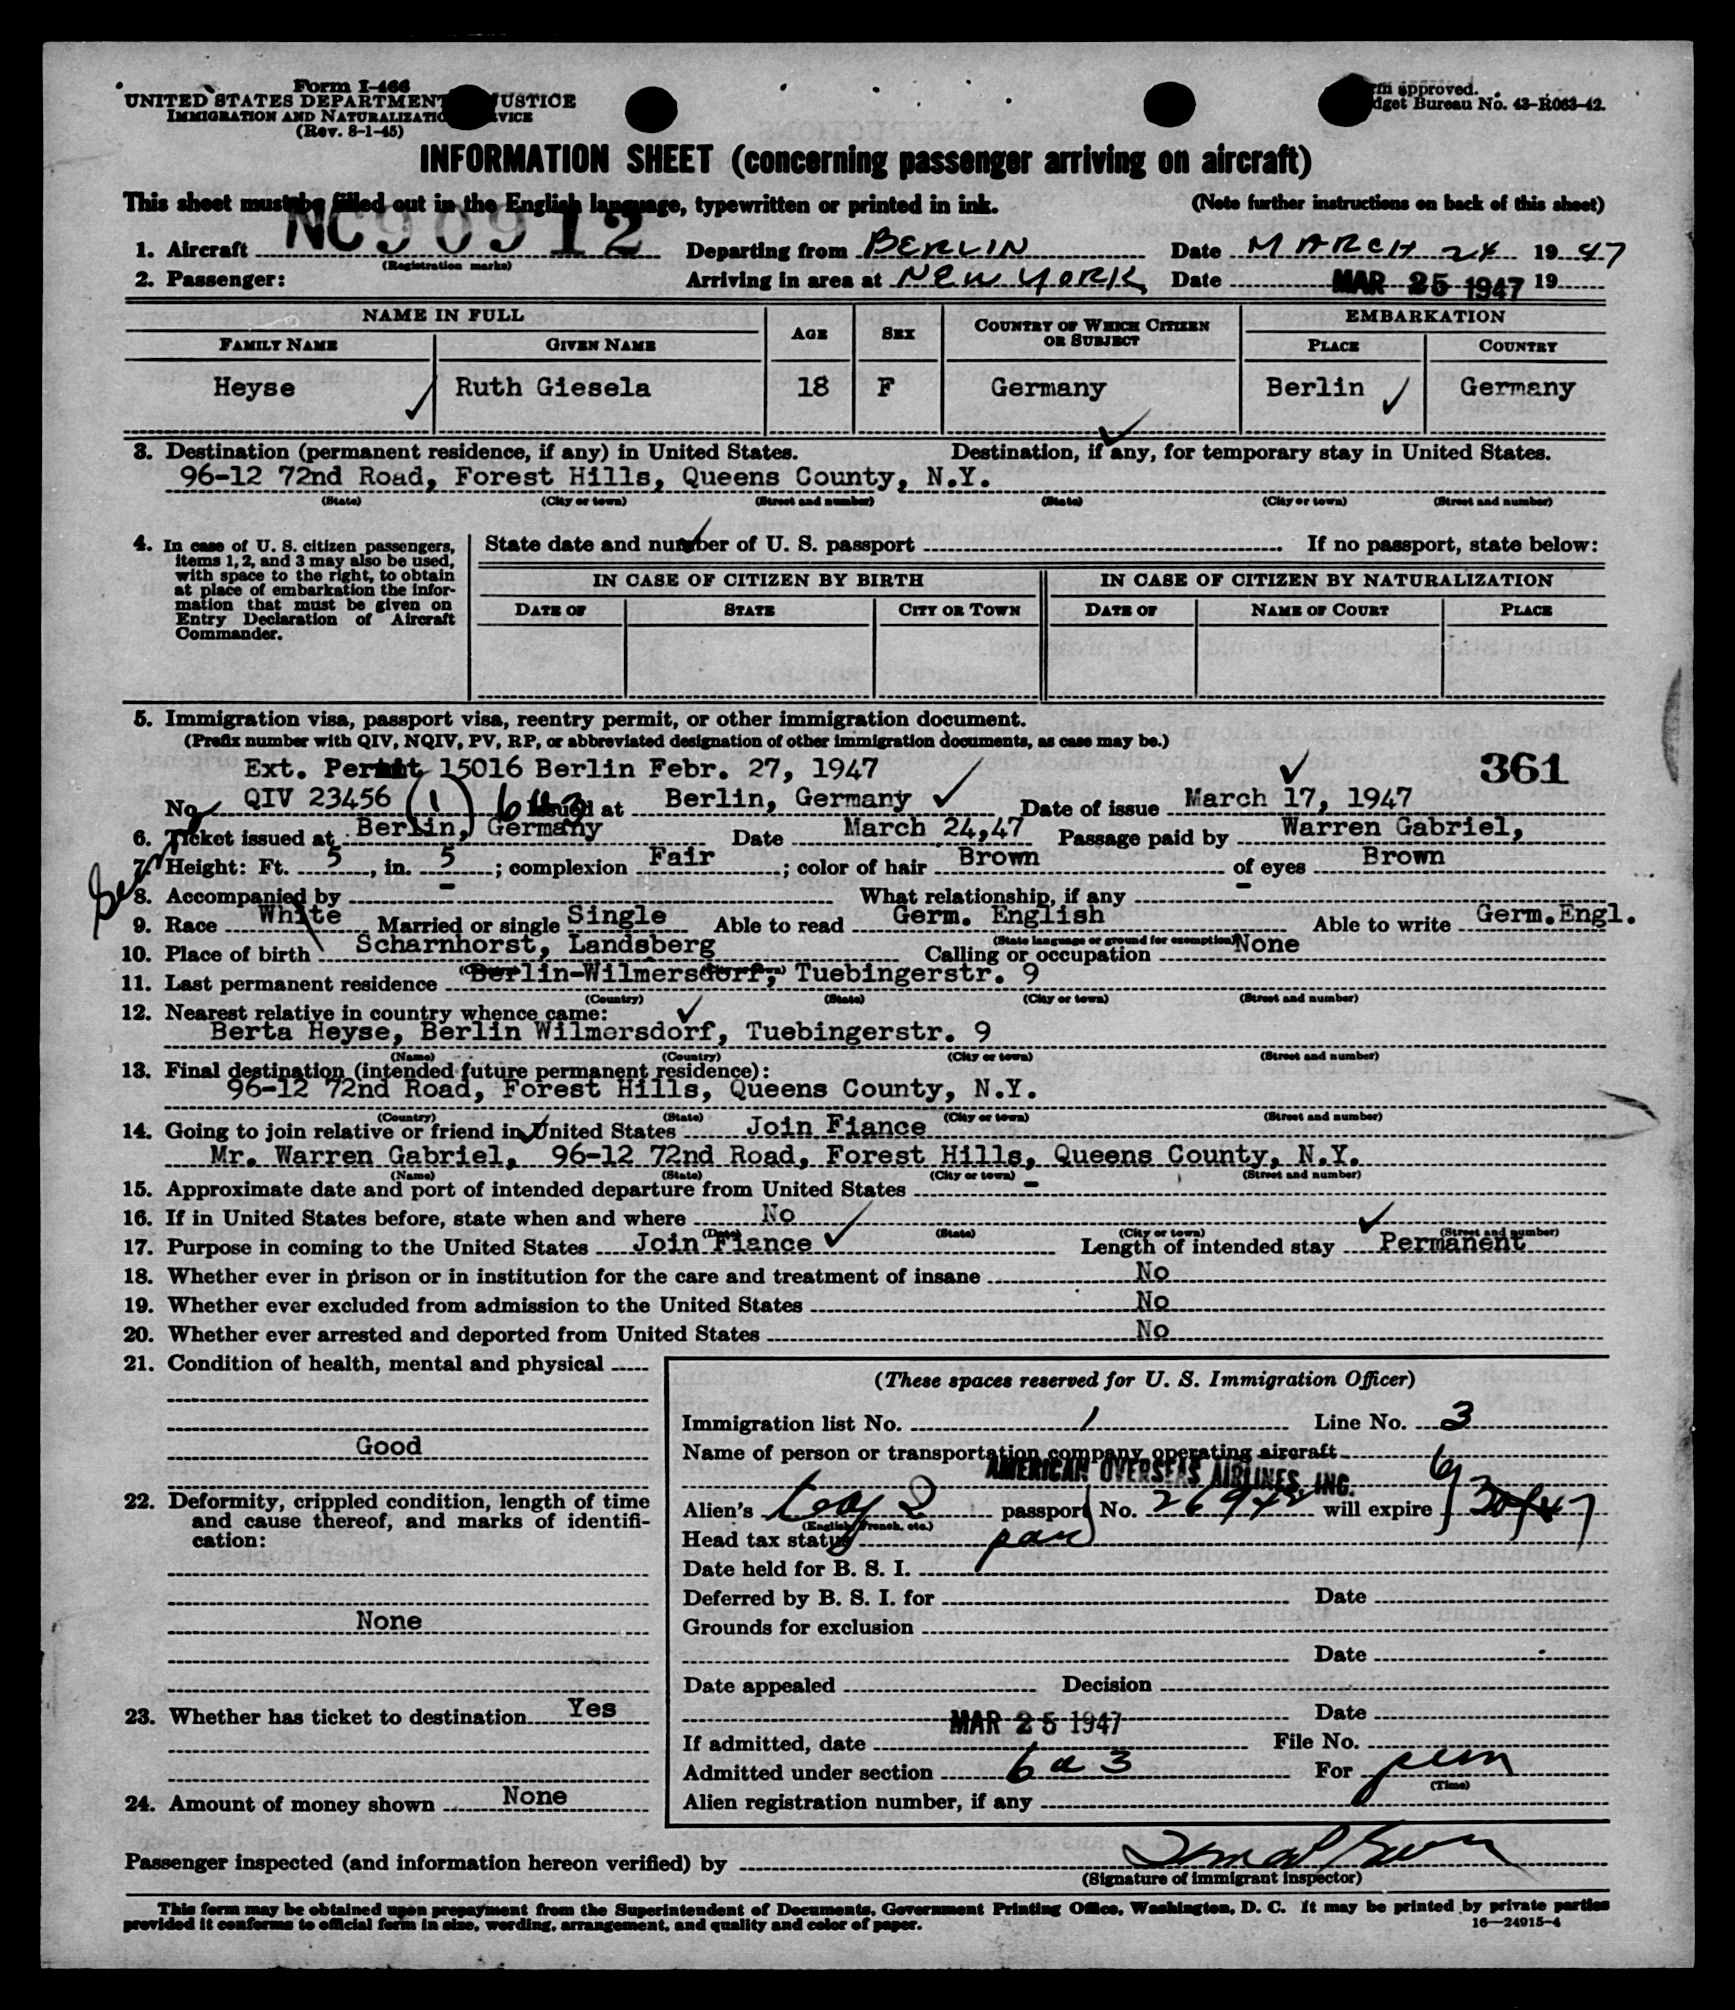 Form I-466
UNITED STATES DEPARTMENT USTICE
IMMIGRATION AND NATURALIZATIO VICE
(Rev. 8-1-45)
rm approved.
dget Bureau No. 43-R063-42.
INFORMATION SHEET (concerning passenger arriving on aircraft)
This sheet must be filled out in the English language, typewritten or printed in ink. (Note further instructions on back of this sheet)
1. Aircraft NC90912 Departing from BERLIN Date MARCH 24 1947
(Registration marks)
2. Passenger: Arriving in area at NEW YORK Date MAR 25 1947 19
NAME IN FULL AGE SEX COUNTRY OF WHICH CITIZEN OR SUBJECT EMBARKATION
FAMILY NAME GIVEN NAME PLACE COUNTRY
Heyse Ruth Giesela 18 F Germany Berlin Germany
3. Destination (permanent residence, if any) in United States. Destination, if any, for temporary stay in United States.
96-12 72nd Road, Forest Hills, Queens County, N.Y.
(State) (City or town) (Street and number) (State) (City or town) (Street and number)
4. In case of U. S. citizen passengers, items 1, 2, and 3 may also be used, with space to the right, to obtain at place of embarkation the information that must be given on Entry Declaration of Aircraft Commander.
State date and number of U. S. passport If no passport, state below:
IN CASE OF CITIZEN BY BIRTH IN CASE OF CITIZEN BY NATURALIZATION
DATE OF STATE CITY OR TOWN DATE OF NAME OF COURT PLACE
5. Immigration visa, passport visa, reentry permit, or other immigration document.
(Prefix number with QIV, NQIV, PV, RP, or abbreviated designation of other immigration documents, as case may be.)
Ext. Permit 15016 Berlin Febr. 27, 1947 361
No. QIV 23456 (1) 6a3 Issued at Berlin, Germany Date of issue March 17, 1947
6. Ticket issued at Berlin, Germany Date March 24,47 Passage paid by Warren Gabriel,
7. Height: Ft. 5, in. 5; complexion Fair; color of hair Brown of eyes Brown
8. Accompanied by - What relationship, if any -
9. Race White Married or single Single Able to read Germ. English Able to write Germ.Engl.
(State language or ground for exemption)
10. Place of birth Scharnhorst, Landsberg Calling or occupation None
11. Last permanent residence Berlin-Wilmersdorf, Tuebingerstr. 9
(Country) (State) (City or town) (Street and number)
12. Nearest relative in country whence came:
Berta Heyse, Berlin Wilmersdorf, Tuebingerstr. 9
(Name) (Country) (City or town) (Street and number)
13. Final destination (intended future permanent residence):
96-12 72nd Road, Forest Hills, Queens County, N.Y.
(Country) (State) (City or town) (Street and number)
14. Going to join relative or friend in United States Join Fiance
Mr. Warren Gabriel, 96-12 72nd Road, Forest Hills, Queens County, N.Y.
(Name) (State) (City or town) (Street and number)
15. Approximate date and port of intended departure from United States -
16. If in United States before, state when and where No
(Date) (State) (City or town) (Street and number)
17. Purpose in coming to the United States Join Fiance Length of intended stay Permanent
18. Whether ever in prison or in institution for the care and treatment of insane No
19. Whether ever excluded from admission to the United States No
20. Whether ever arrested and deported from United States No
21. Condition of health, mental and physical
Good
22. Deformity, crippled condition, length of time and cause thereof, and marks of identification:
None
23. Whether has ticket to destination Yes
24. Amount of money shown None
(These spaces reserved for U. S. Immigration Officer)
Immigration list No. 1 Line No. 3
Name of person or transportation company operating aircraft
AMERICAN OVERSEAS AIRLINES, INC.
Alien's passport No. 26942 will expire
(English, French, etc.)
Head tax status
Date held for B. S. I.
Deferred by B. S. I. for Date
Grounds for exclusion
Date
Date appealed Decision
Date
If admitted, date MAR 25 1947 File No.
Admitted under section 6a3 For perm
(Time)
Alien registration number, if any
Passenger inspected (and information hereon verified) by
(Signature of immigrant inspector)
This form may be obtained upon prepayment from the Superintendent of Documents, Government Printing Office, Washington, D. C. It may be printed by private parties
provided it conforms to official form in size, wording, arrangement, and quality and color of paper. 16—24915-4